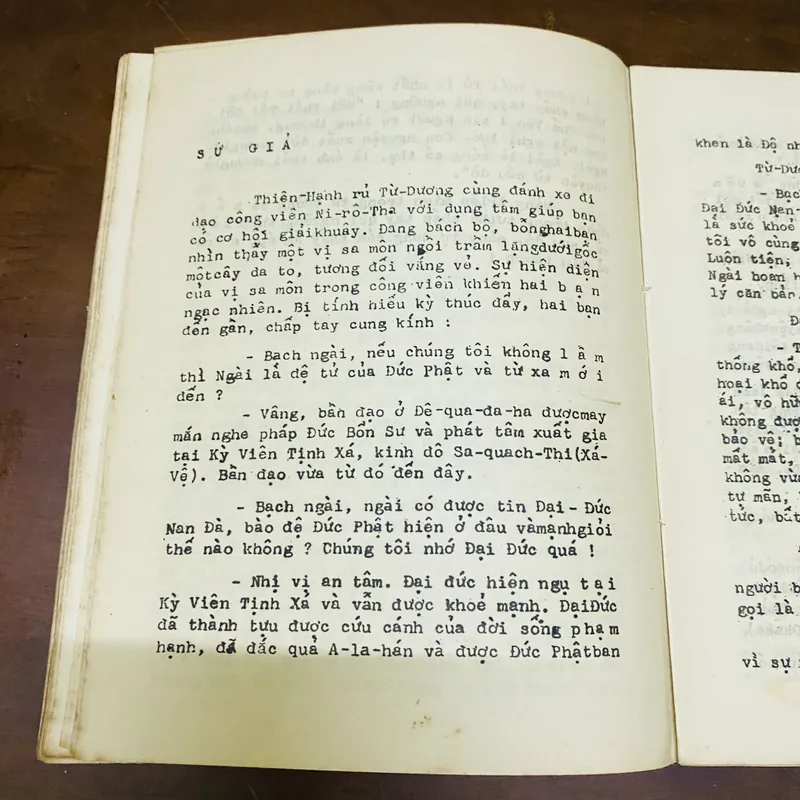 SỨ GIẢ
Thiện-Hạnh rủ Từ-Dương cùng đánh xe đi
dạo công viên Ni-rô-Tha với dụng tâm giúp bạn
có cơ hội giảikhuây. Đang bách bộ, bỗnghaibạn
nhìn thấy một vị sa môn ngồi trầm lặngdướigốc
mộtcây da to, tương đối vắng vẻ. Sự hiện diện
của vị sa môn trong công viên khiến hai bạn
ngạc nhiên. Bị tính hiếu kỳ thúc dẩy, hai bạn
đến gần, chấp tay cung kính :
- Bạch ngài, nếu chúng tôi không lầm
thì Ngài là đệ tử của Đức Phật và từ xa mới
đến ?
- Vâng, bần đạo ở Đê-qua-đa-ha đượcmay
mắn nghe pháp Đức Bổn Sư và phát tâm xuất gia
tại Kỳ Viên Tịnh Xá, kinh đô Sa-quach-Thi(Xá-
Vệ). Bần đạo vừa từ đó đến đây.
- Bạch ngài, ngài có được tin Đại-Đức
Nan Đà, bào đệ Đức Phật hiện ở đâu vàmạnhgiỏi
thế nào không ? Chúng tôi nhớ Đại Đức quá !
- Nhị vị an tâm. Đại đức hiện ngụ tại
Kỳ Viên Tịnh Xá và vẫn được khoẻ mạnh. ĐạiĐức
đã thành tựu được cứu cánh của đời sống phạm
hạnh, đã đắc quả A-la-hán và được Đức Phậtban
khen là Đệ nh
Từ-Dươ
- Bạc
Đại Đức Nan-
là sức khoẻ
tôi vô cùng
Luộn tiện,
Ngài hoan h
lý căn bản.
Đ
- T
thống khổ,
hoại khổ
ái, vô hữ
không đượ
bảo vệ;
mất mát,
không vừa
tự mãn,
tức, bất
người b
gọi là
vì sự